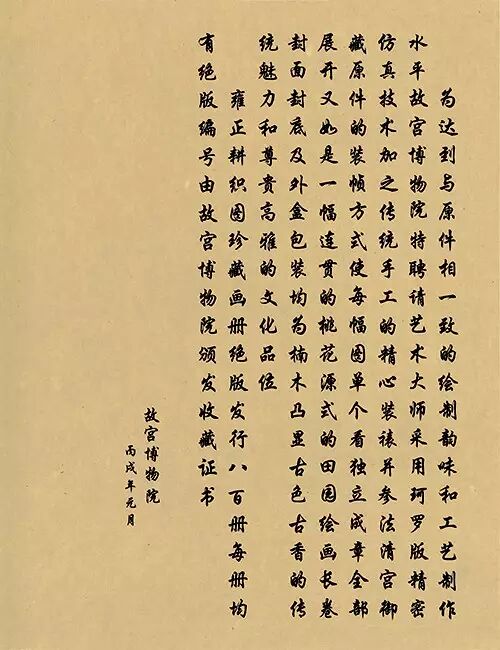 为达到与原件相一致的绘制韵味和工艺制作
水平故宫博物院特聘请艺术大师采用珂罗版精密
仿真技术加之传统手工的精心装裱并参法清宫御
藏原件的装帧方式使每幅图单个看独立成章全部
展开又如是一幅连贯的桃花源式的田园绘画长卷
封面封底及外盒包装均为楠木凸显古色古香的传
统魅力和尊贵高雅的文化品位
雍正耕织图珍藏画册绝版发行八百册每册均
有绝版编号由故宫博物院颁发收藏证书
故宫博物院
丙戌年元月